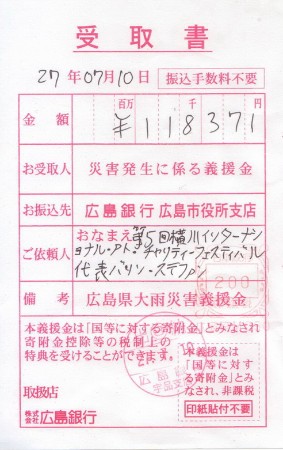 受取書
27年07月10日 振込手数料不要
金額 百万 千 円 ¥118371
お受取人 災害発生に係る義援金
お振込先 広島銀行 広島市役所支店
おなまえ 第5回横川インターナシ
ご依頼人 ョナル・アト・チャリティーフェスティバル
代表バリン・ステファン
200
備考 広島県大雨災害義援金
本義援金は「国等に対する寄附金」とみなされ
寄附金控除等の税制上の
特典を受けることができます。
本義援金は
「国等に対す
る寄附金」とみ
なされ、非課税
印紙貼付不要
取扱店
株式会社 広島銀行